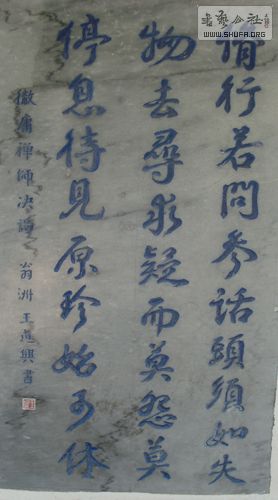 诵行若問参話頭須如失
物去尋求疑而莫怨莫
停息待見原珍始可休
徹庸禅師决語 翁洲王道興書
书艺公社
WWW.SHUFA.ORG